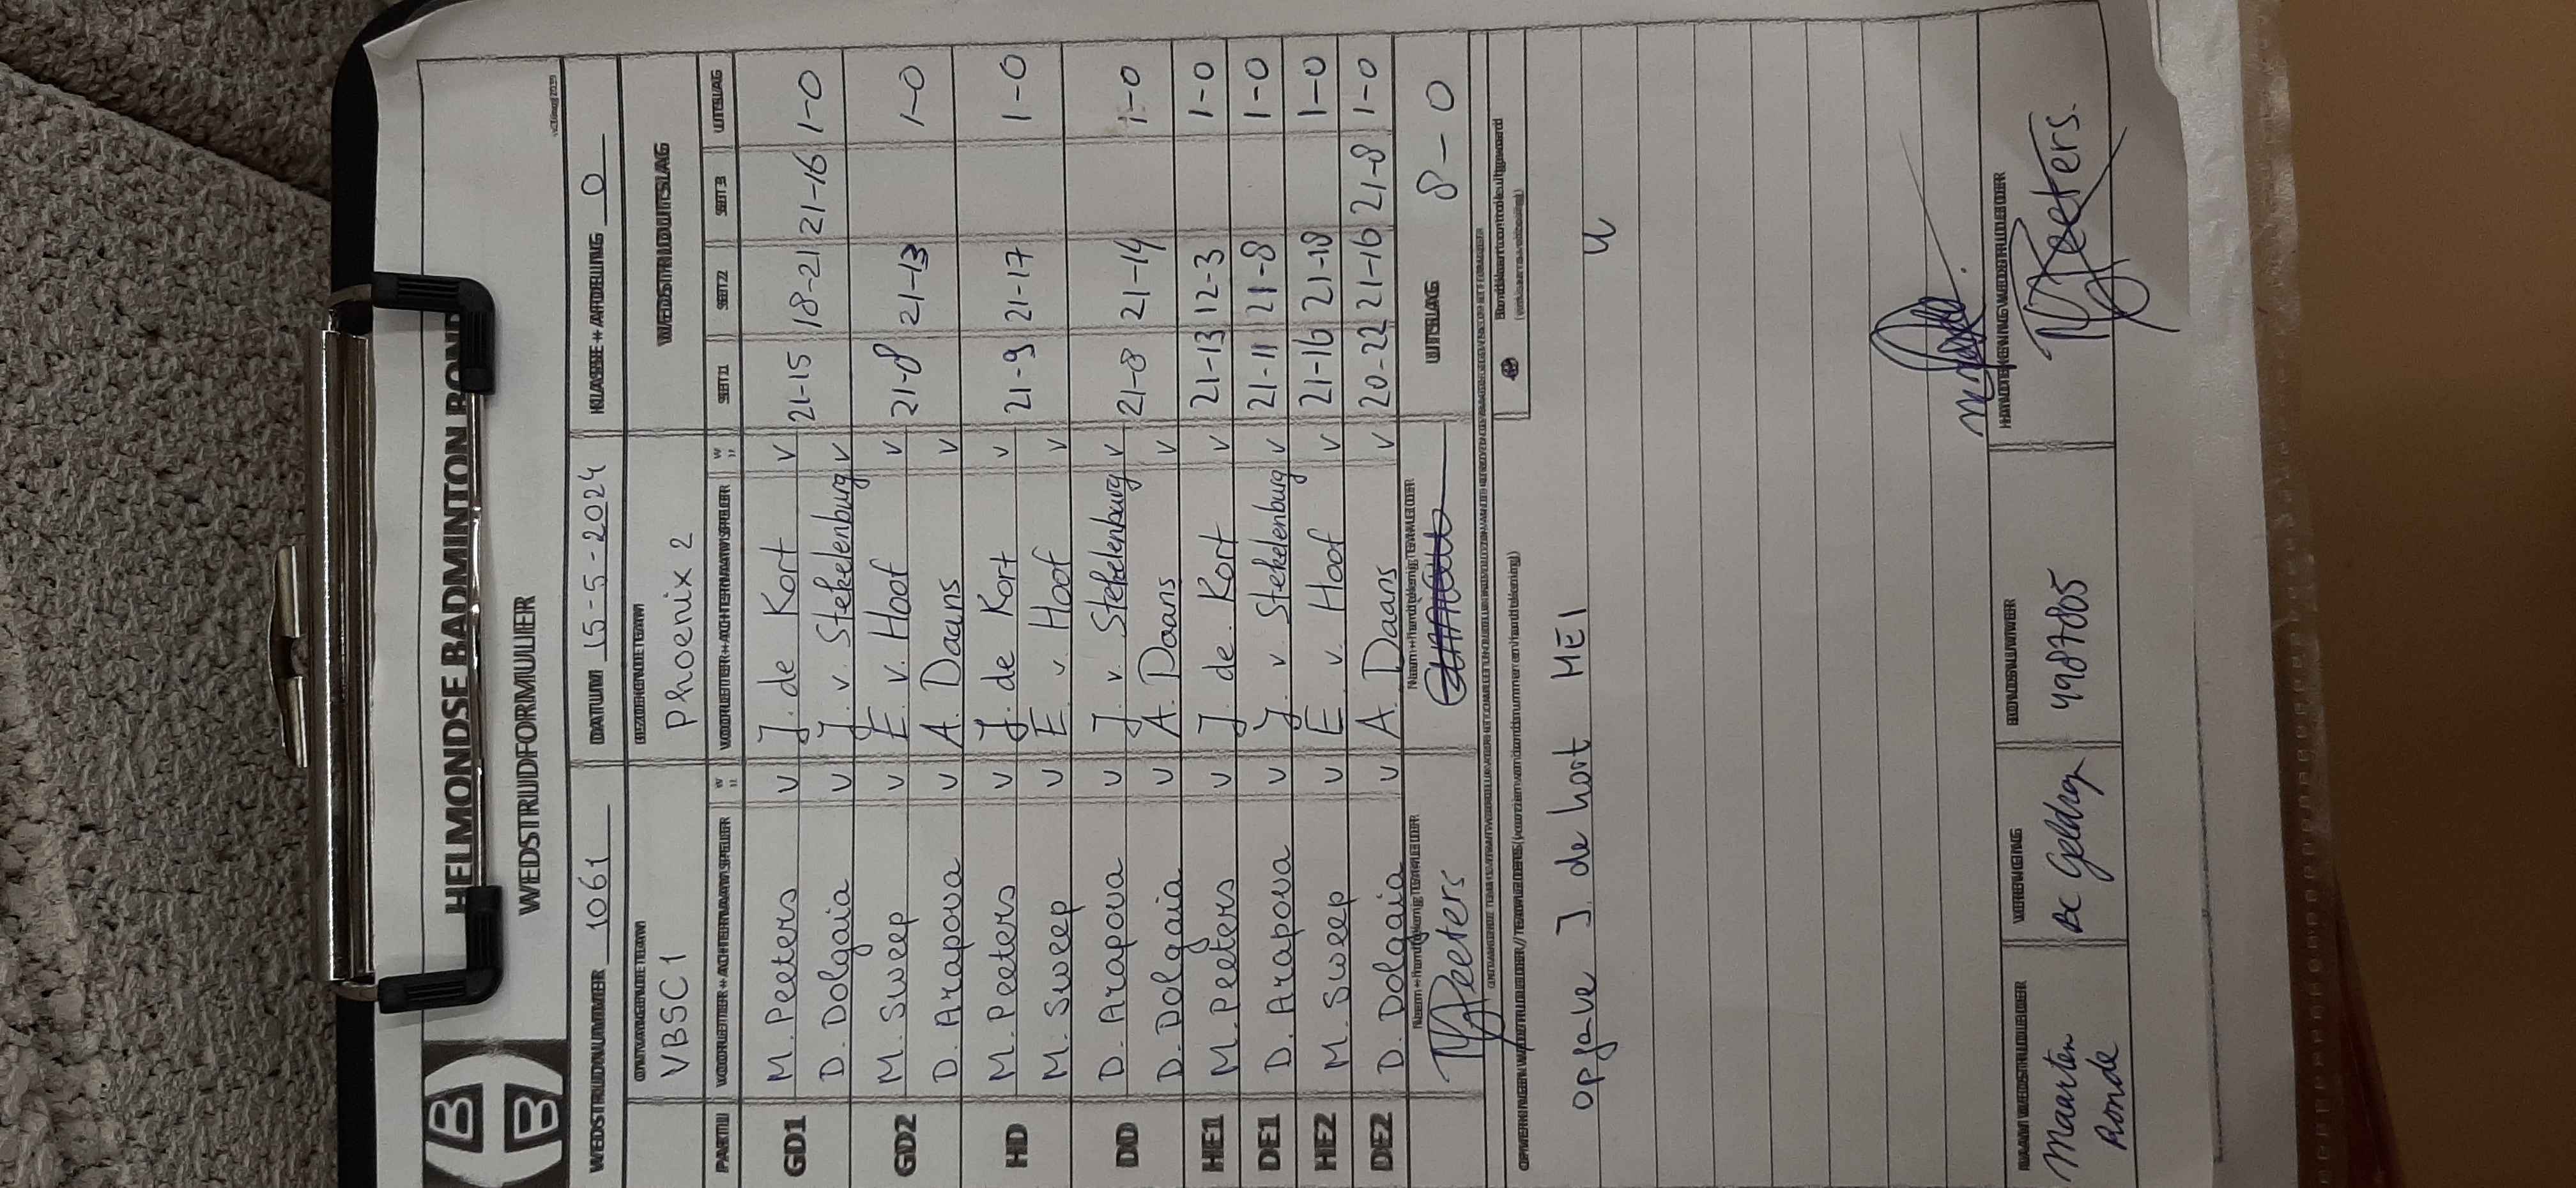 HELMONDSE BADMINTON BOND
WEDSTRIJDFORMULIER
WEDSTRIJDNUMMER 1061 DATUM 15-5-2024 KLASSE + AFDELING 0
ONTVANGENDE TEAM BEZOEKENDE TEAM WEDSTRIJDUITSLAG
VBSC1 Phoenix 2
PARTIJ VOORLETTER + ACHTERNAAM SPELER VOORLETTER + ACHTERNAAM SPELER SET 1 SET 2 SET 3 UITSLAG
GD1 M. Peeters v J. de Kort v 21-15 18-21 21-16 1-0
D. Dolgaia v J. v. Stekelenburg v
GD2 M. Sweep v E v. Hoof v 21-8 21-13 1-0
D. Arapova v A. Daans v
HD M. Peeters v J. de Kort v 21-9 21-17 1-0
M. Sweep v E v. Hoof v
DD D. Arapova v J. v. Stekelenburg v 21-8 21-14 1-0
D. Dolgaia v A. Daans v
HE1 M. Peeters v J. de Kort v 21-13 12-3 1-0
DE1 D. Arapova v J. v Stekelenburg v 21-11 21-8 1-0
HE2 M. Sweep v E v. Hoof v 21-16 21-18 1-0
DE2 D. Dolgaia v A. Daans v 20-22 21-16 21-8 1-0
Naam + handtekening TEAMLEIDER Naam + handtekening TEAMLEIDER UITSLAG 8-0
Peeters
opgave J de kort ME1
NAAM WEDSTRIJDLEIDER VERENIGING BONDSNUMMER HANDTEKENING WEDSTRIJDLEIDER
Maarten Ronde BC Geldrop 4987805 Peeters.